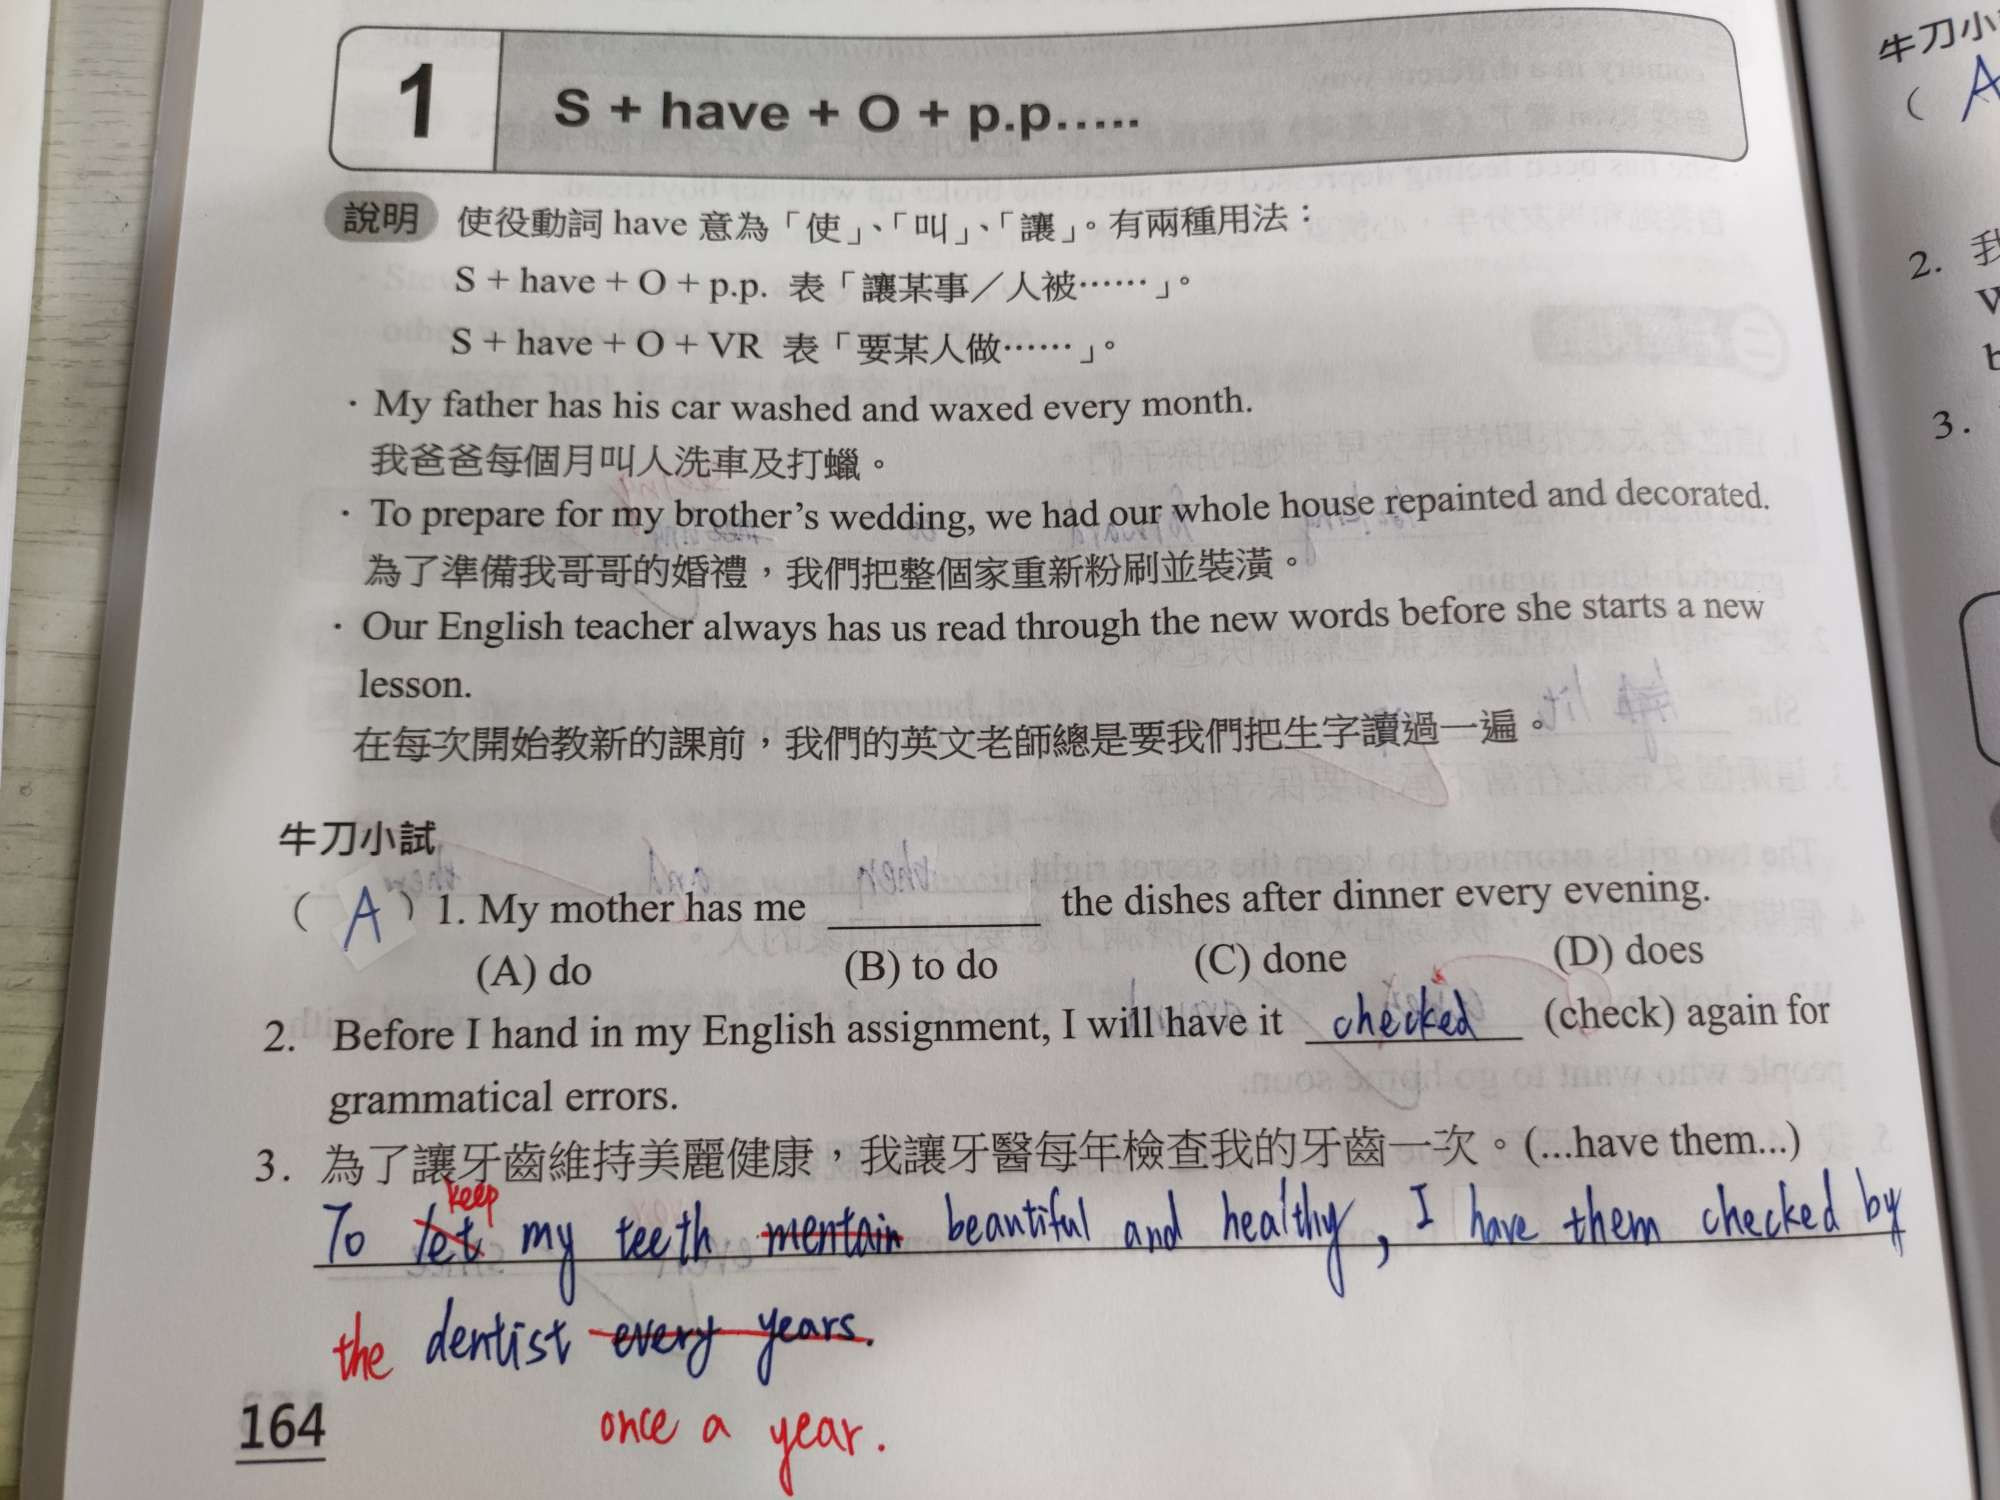 1 S + have + O + p.p.....
說明 使役動詞 have 意為「使」、「叫」、「讓」。有兩種用法：
S + have + O + p.p. 表「讓某事／人被……」。
S + have + O + VR 表「要某人做……」。
· My father has his car washed and waxed every month.
我爸爸每個月叫人洗車及打蠟。
· To prepare for my brother's wedding, we had our whole house repainted and decorated.
為了準備我哥哥的婚禮，我們把整個家重新粉刷並裝潢。
· Our English teacher always has us read through the new words before she starts a new
lesson.
在每次開始教新的課前，我們的英文老師總是要我們把生字讀過一遍。
牛刀小試
( A ) 1. My mother has me ________ the dishes after dinner every evening.
(A) do (B) to do (C) done (D) does
2. Before I hand in my English assignment, I will have it checked (check) again for
grammatical errors.
3. 為了讓牙齒維持美麗健康，我讓牙醫每年檢查我的牙齒一次。(...have them...)
keep
To let my teeth mentain beautiful and healthy, I have them checked by
the dentist every years.
once a year.
164
牛刀小
( A
2. 我
W
b
3.